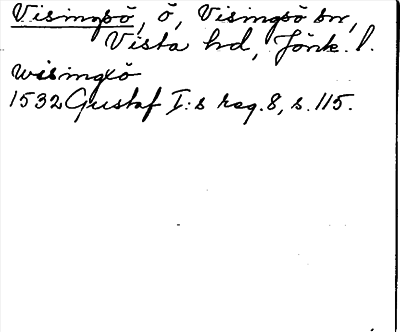 Visingsö, ö, Visingsö sn,
Vista hd, Jönk. l.
wisingxö
1532 Gustaf I:s reg. 8, s. 115.